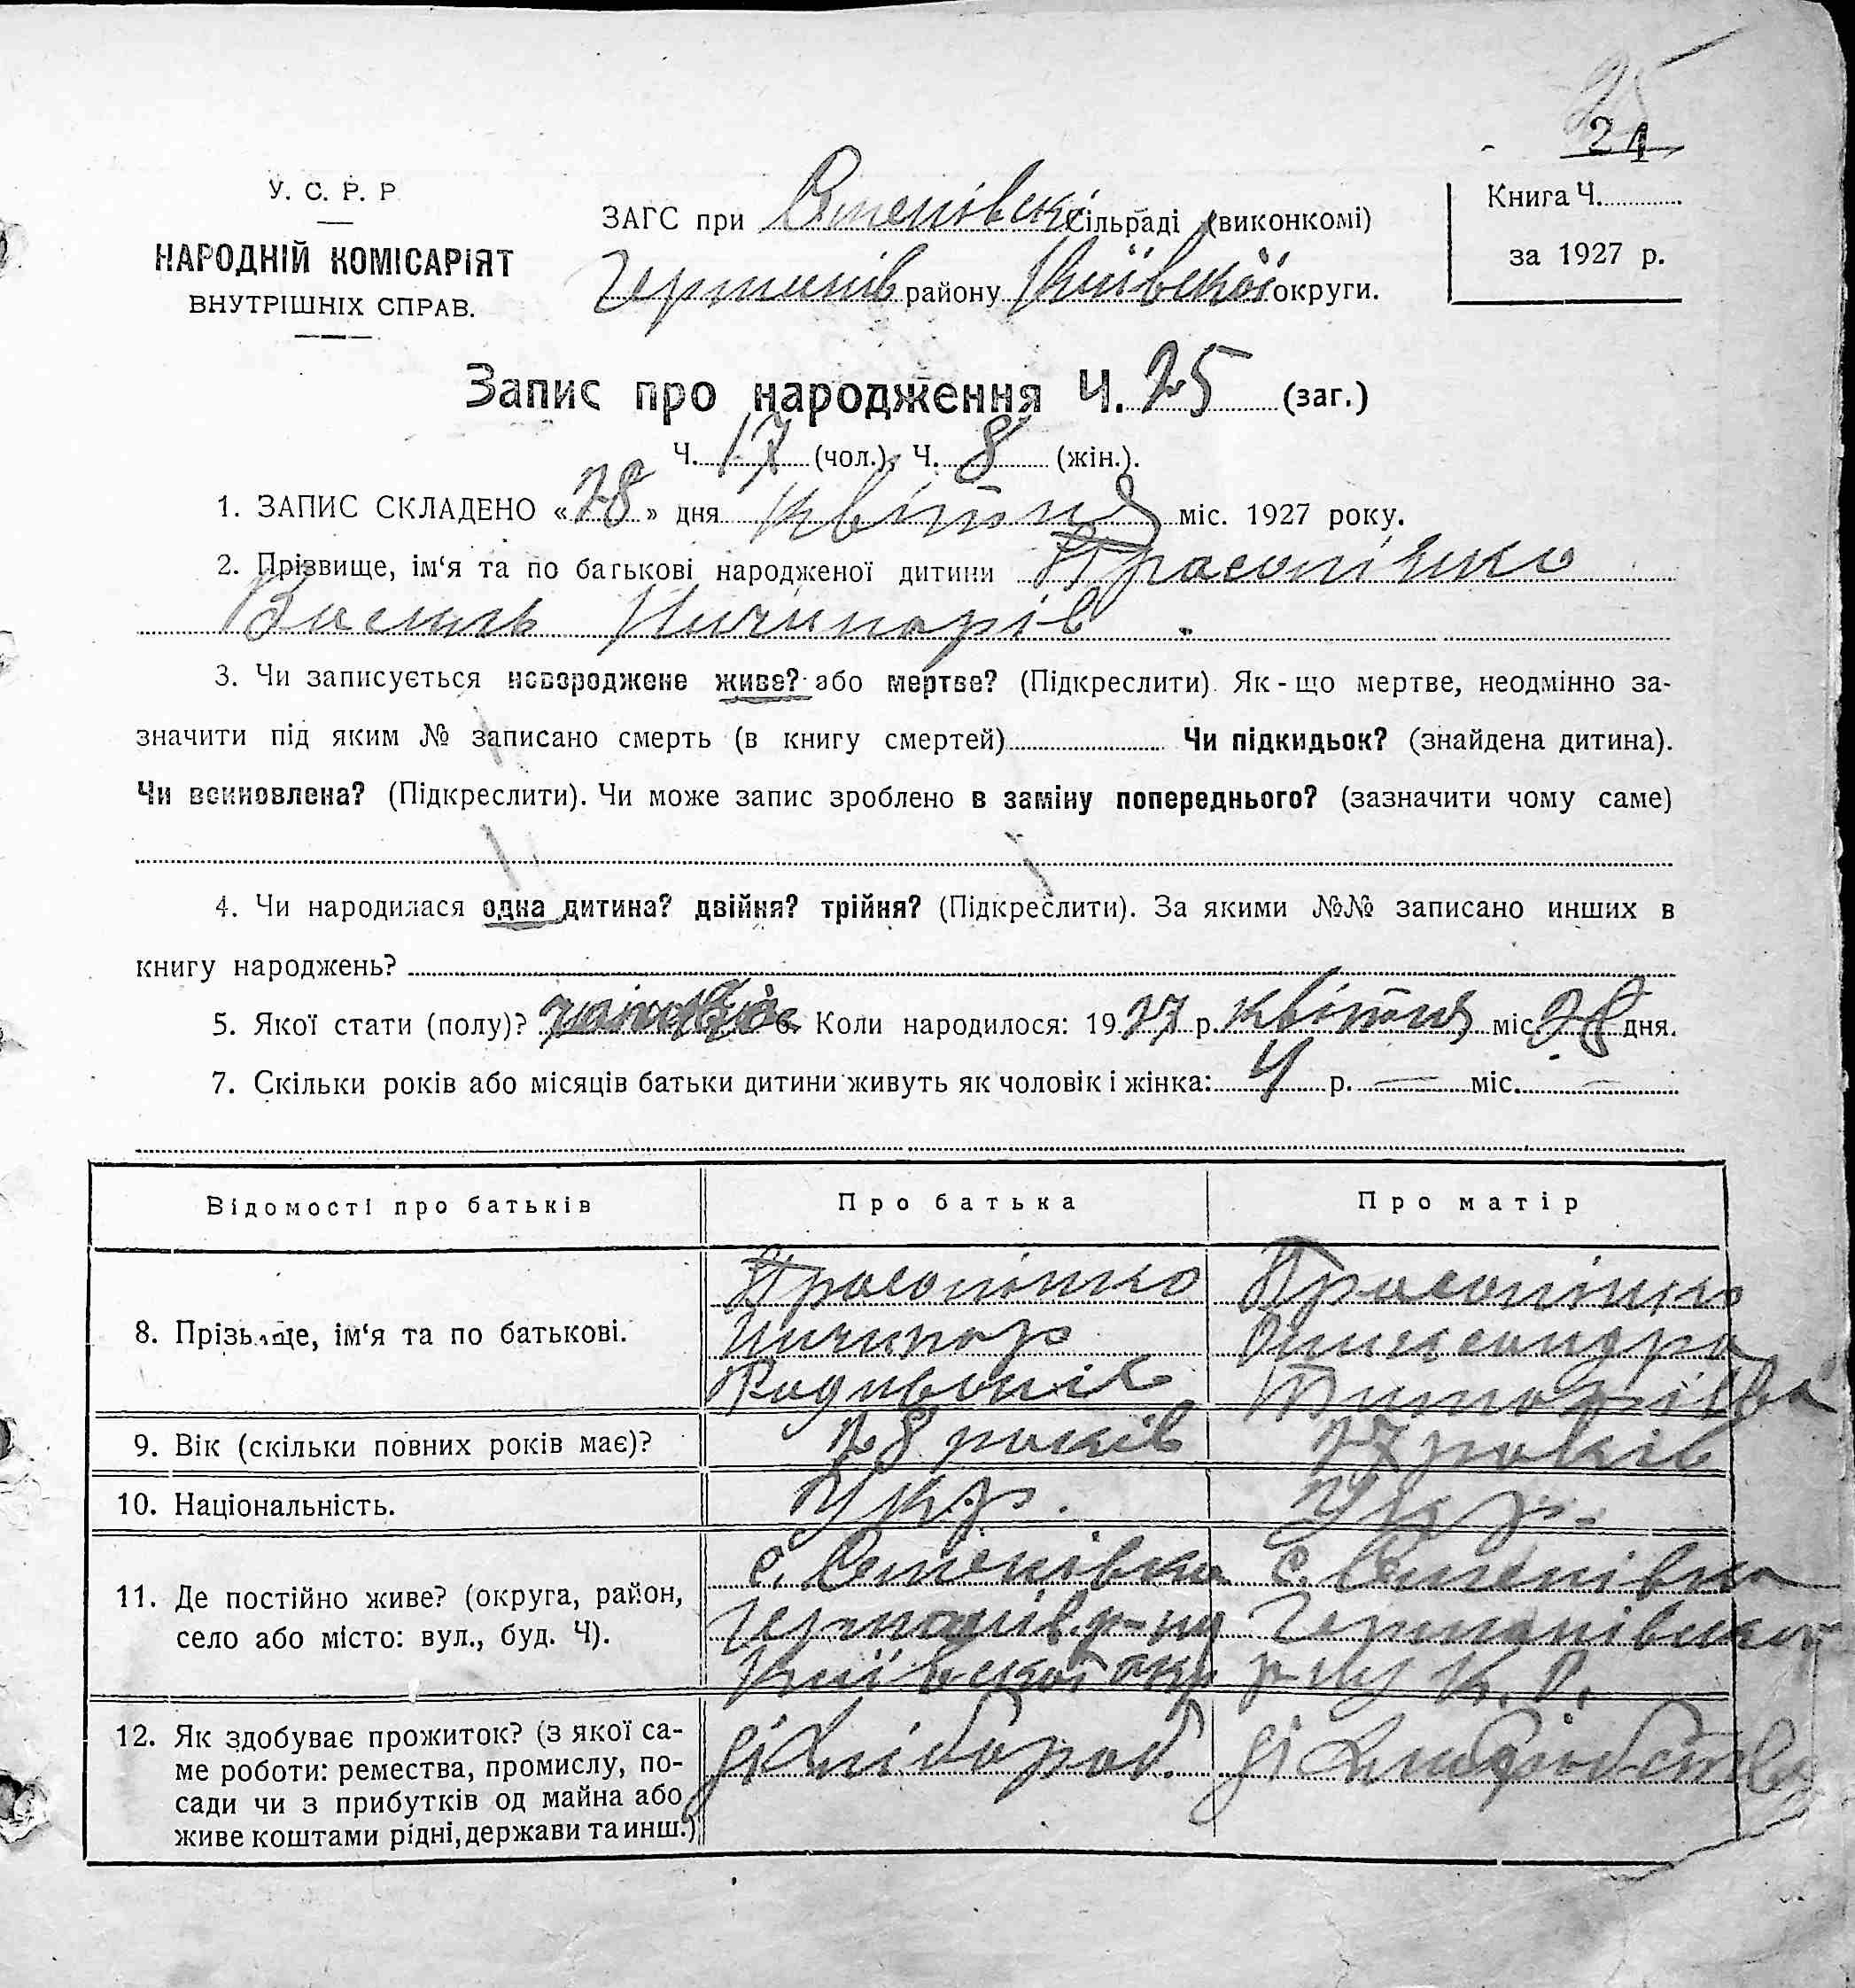 25
24
У. С. Р. Р
НАРОДНІЙ КОМІСАРІЯТ
ВНУТРІШНІХ СПРАВ.
ЗАГС при Семенівскі Сільраді (виконкомі)
Германів району Київської округи.
Книга Ч.
за 1927 р.
Запис про народження Ч. 25 (заг.)
Ч. 17 (чол.), Ч. 8 (жін.).
1. ЗАПИС СКЛАДЕНО «28» дня квітня міс. 1927 року.
2. Прізвище, ім‘я та по батькові народженої дитини
Василь Ничипорів
3. Чи записується новороджене живе? або мертве? (Підкреслити). Як-що мертве, неодмінно за-
значити під яким № записано смерть (в книгу смертей) Чи підкидьок? (знайдена дитина).
Чи всиновлена? (Підкреслити). Чи може запис зроблено в заміну попереднього? (зазначити чому саме)
4. Чи народилася одна дитина? двійня? трійня? (Підкреслити). За якими №№ записано инших в
книгу народжень?
5. Якої стати (полу)? 6. Коли народилося: 1927 р. квітня міс. 28 дня.
7. Скільки років або місяців батьки дитини живуть як чоловік і жінка: 4 р. — міс. —
Відомості про батьків
Про батька
Про матір
8. Прізвище, ім‘я та по батькові.
Ничипор
Родивонів
Олександра
9. Вік (скільки повних років має)?
28 років
27 років
10. Національність.
Укр.
Укр.
11. Де постійно живе? (округа, район,
село або місто: вул., буд. Ч).
с. Семенівка
Германів. р-ну
Київської окр
с. Семенівка
Германівського
р-ну К. О.
12. Як здобуває прожиток? (з якої са-
ме роботи: ремества, промислу, по-
сади чи з прибутків од майна або
живе коштами рідні, держави та инш.)
зі хлібороб.
зі хліборобства